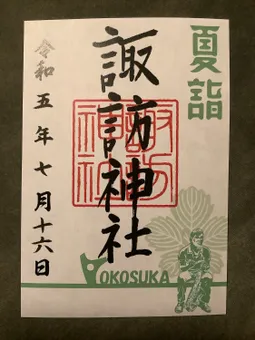 夏詣
諏訪神社
令和五年七月十六日
諏訪神社
YOKOSUKA